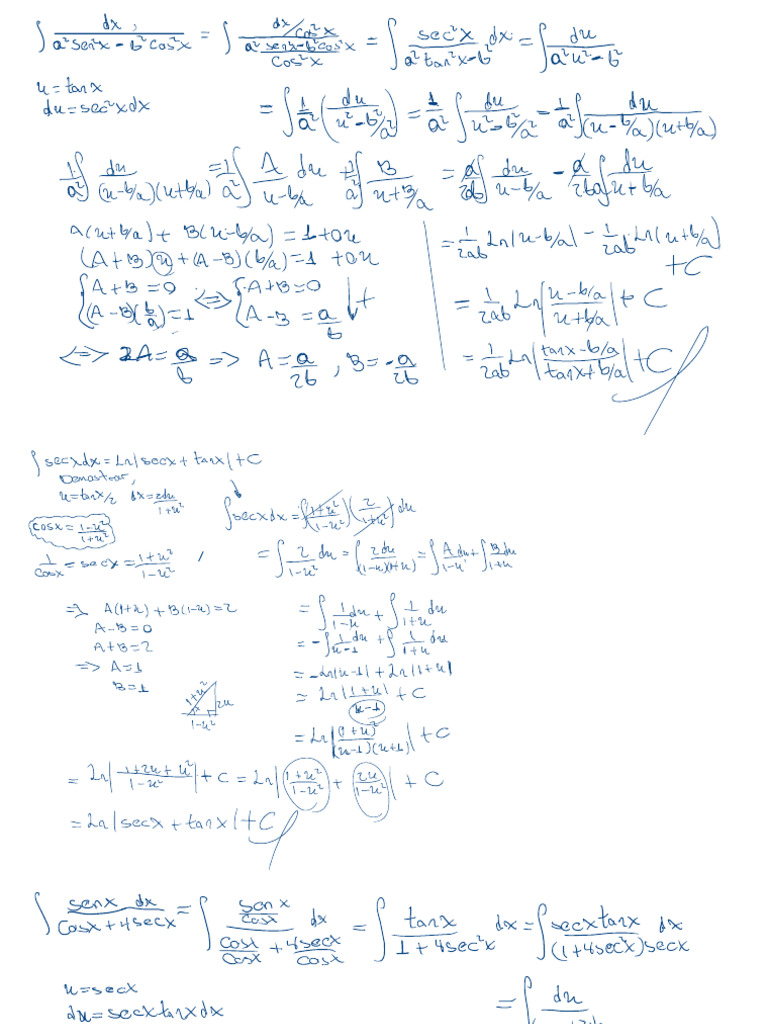 ∫ dx / (a² sen²x − b² cos²x) = ∫ (dx/cos²x) / ((a² sen²x − b² cos²x)/cos²x) = ∫ sec²x / (a² tan²x − b²) dx = ∫ du / (a²u² − b²)
u = tanx
du = sec²x dx
= ∫ 1/a² (du / (u² − b²/a²)) = 1/a² ∫ du / (u² − b²/a²) − 1/a² ∫ du / ((u − b/a)(u + b/a))
1/a² ∫ du / ((u − b/a)(u + b/a)) = 1/a² ∫ A / (u − b/a) du + 1/a² ∫ B / (u + B/a) = a/2b ∫ du / (u − b/a) − a/2ba ∫ du / (u + b/a)
A(u + b/a) + B(u − b/a) = 1 + 0u
(A + B)(u) + (A − B)(b/a) = 1 + 0u
{ A + B = 0
(A − B)(b/a) = 1 <=> { A + B = 0
A − B = a/b ↓+
<=> 2A = a/b => A = a/2b , B = −a/2b
= 1/2ab Ln|u − b/a| − 1/2ab Ln|u + b/a| + C
= 1/2ab Ln|(u − b/a)/(u + b/a)| + C
= 1/2ab Ln|(tanx − b/a)/(tanx + b/a)| + C
∫ secx dx = Ln|secx + tanx| + C
Demostrar,
u = tanx/2 dx = 2du/(1+u²)
cosx = (1−u²)/(1+u²)
1/cosx = secx = (1+u²)/(1−u²)
∫ secx dx = ∫ ((1+u²)/(1−u²)) (2/(1+u²)) du
= ∫ 2/(1−u²) du = ∫ 2du/((1−u)(1+u)) = ∫ A du/(1−u) + ∫ B du/(1+u)
=> A(1+u) + B(1−u) = 2
A − B = 0
A + B = 2
=> A = 1
B = 1
1+u²
2u
x
1−u²
= ∫ 1/(1−u) du + ∫ 1/(1+u) du
= −∫ 1/(u−1) du + ∫ 1/(1+u) du
= −Ln|u−1| + Ln|1+u|
= Ln|(1+u)/(u−1)| + C
= Ln|(1+u)²/((u−1)(u+1))| + C
= Ln|(1+2u+u²)/(1−u²)| + C = Ln|(1+u²)/(1−u²) + 2u/(1−u²)| + C
= Ln|secx + tanx| + C
∫ senx dx / (cosx + 4secx) = ∫ (senx/cosx) / (cosx/cosx + 4secx/cosx) dx = ∫ tanx / (1 + 4sec²x) dx = ∫ secx tanx / ((1 + 4sec²x) secx) dx
u = secx
du = secx tanx dx
= ∫ du